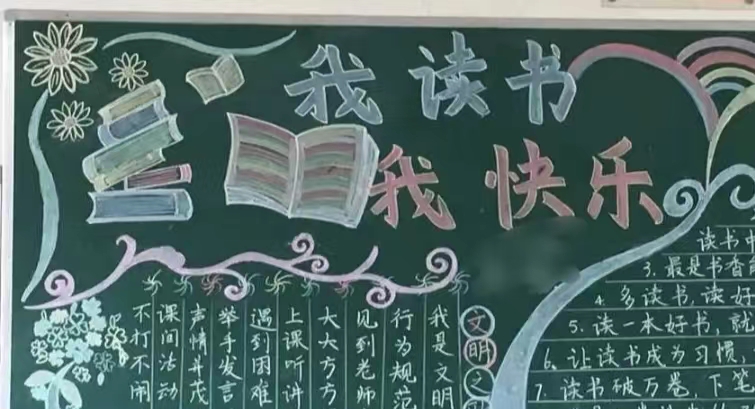 我读书
我快乐
文明之
我是文明
行为规范
见到老师
大大方方
上课听讲
遇到困难
举手发言
声情并茂
课间活动
不打不闹
读书
3. 最是书香
4. 多读书,读好
5. 读一本好书,
6. 让读书成为习惯,
7. 读书破万卷 下笔